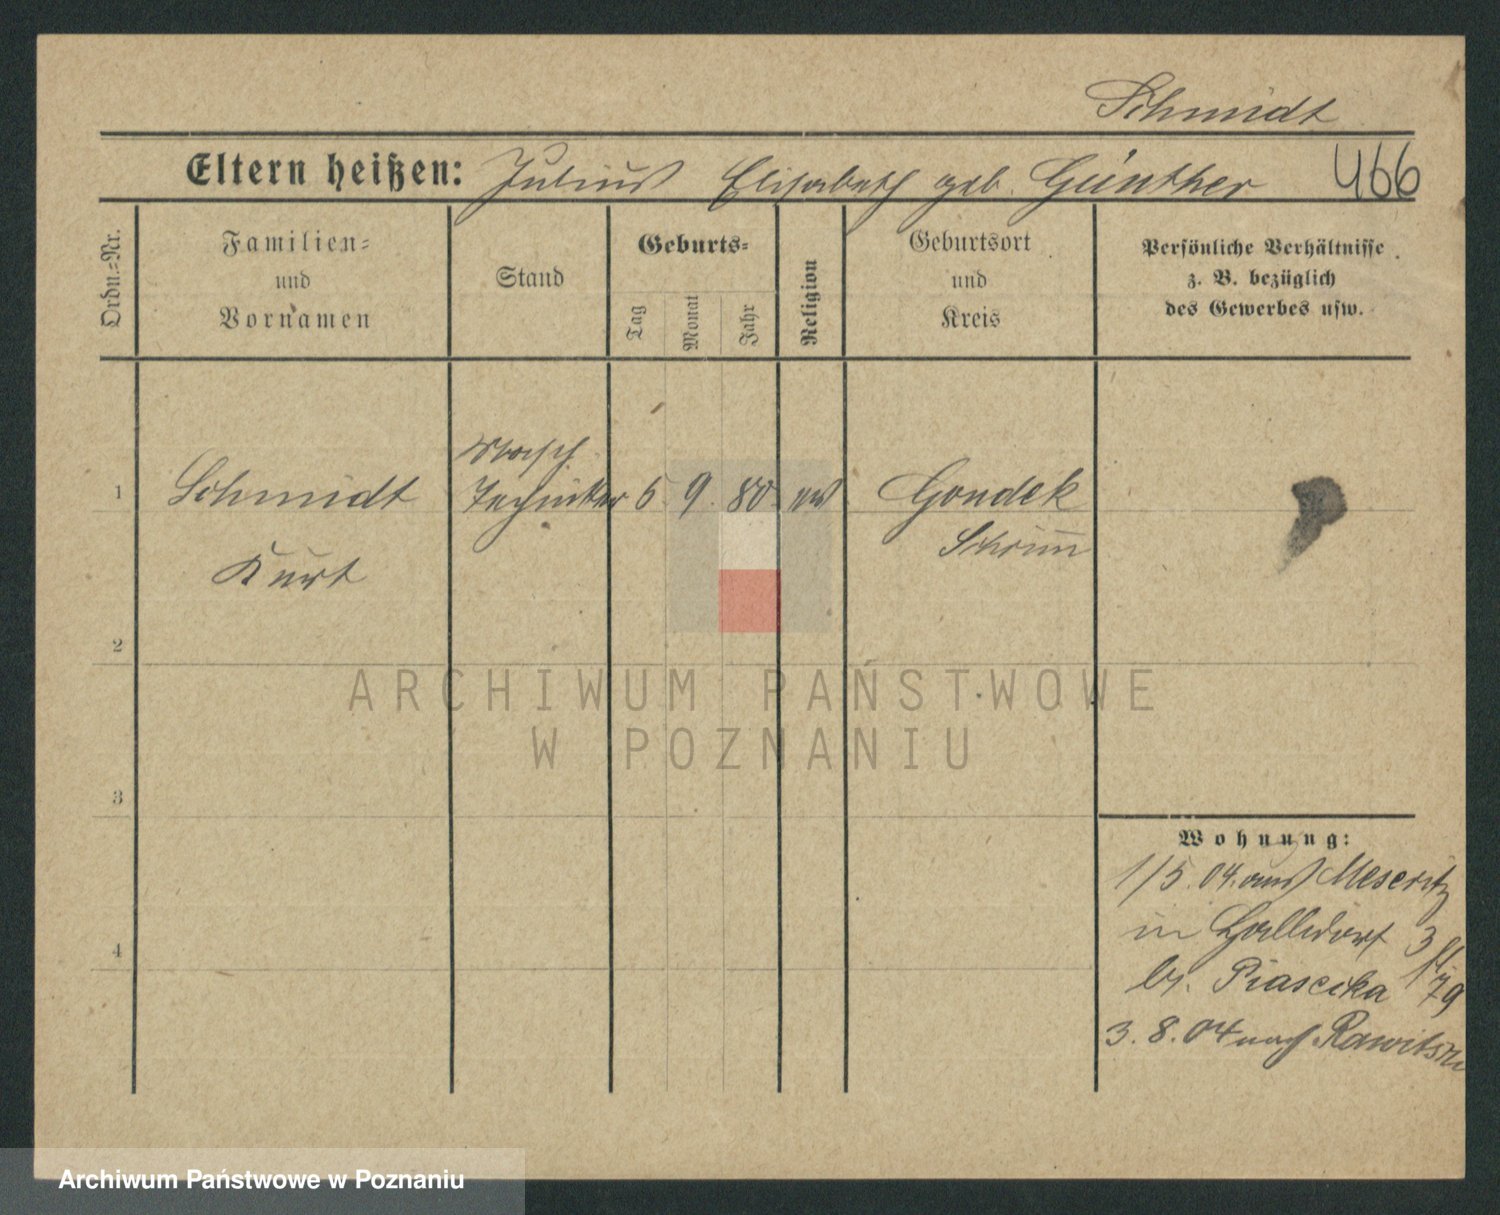 Schmidt
Eltern heißen: Julius Elisabeth geb. Günther 466
Ordn.=Nr.
Familien=
und
Vornamen
Stand
Geburts=
Tag
Monat
Jahr
Religion
Geburtsort
und
Kreis
Persönliche Verhältnisse
z. B. bezüglich
des Gewerbes usw.
1 Schmidt Techniker 6 9 80 ev Gondek
Schrimm
Kurt
2
3
4
ARCHIWUM PAŃSTWOWE
W POZNANIU
Wohnung:
1/5.04. aus Meseritz
in Halldorf 3
br. Piascika 79
3.8.04 nach Rawitsch
Archiwum Państwowe w Poznaniu